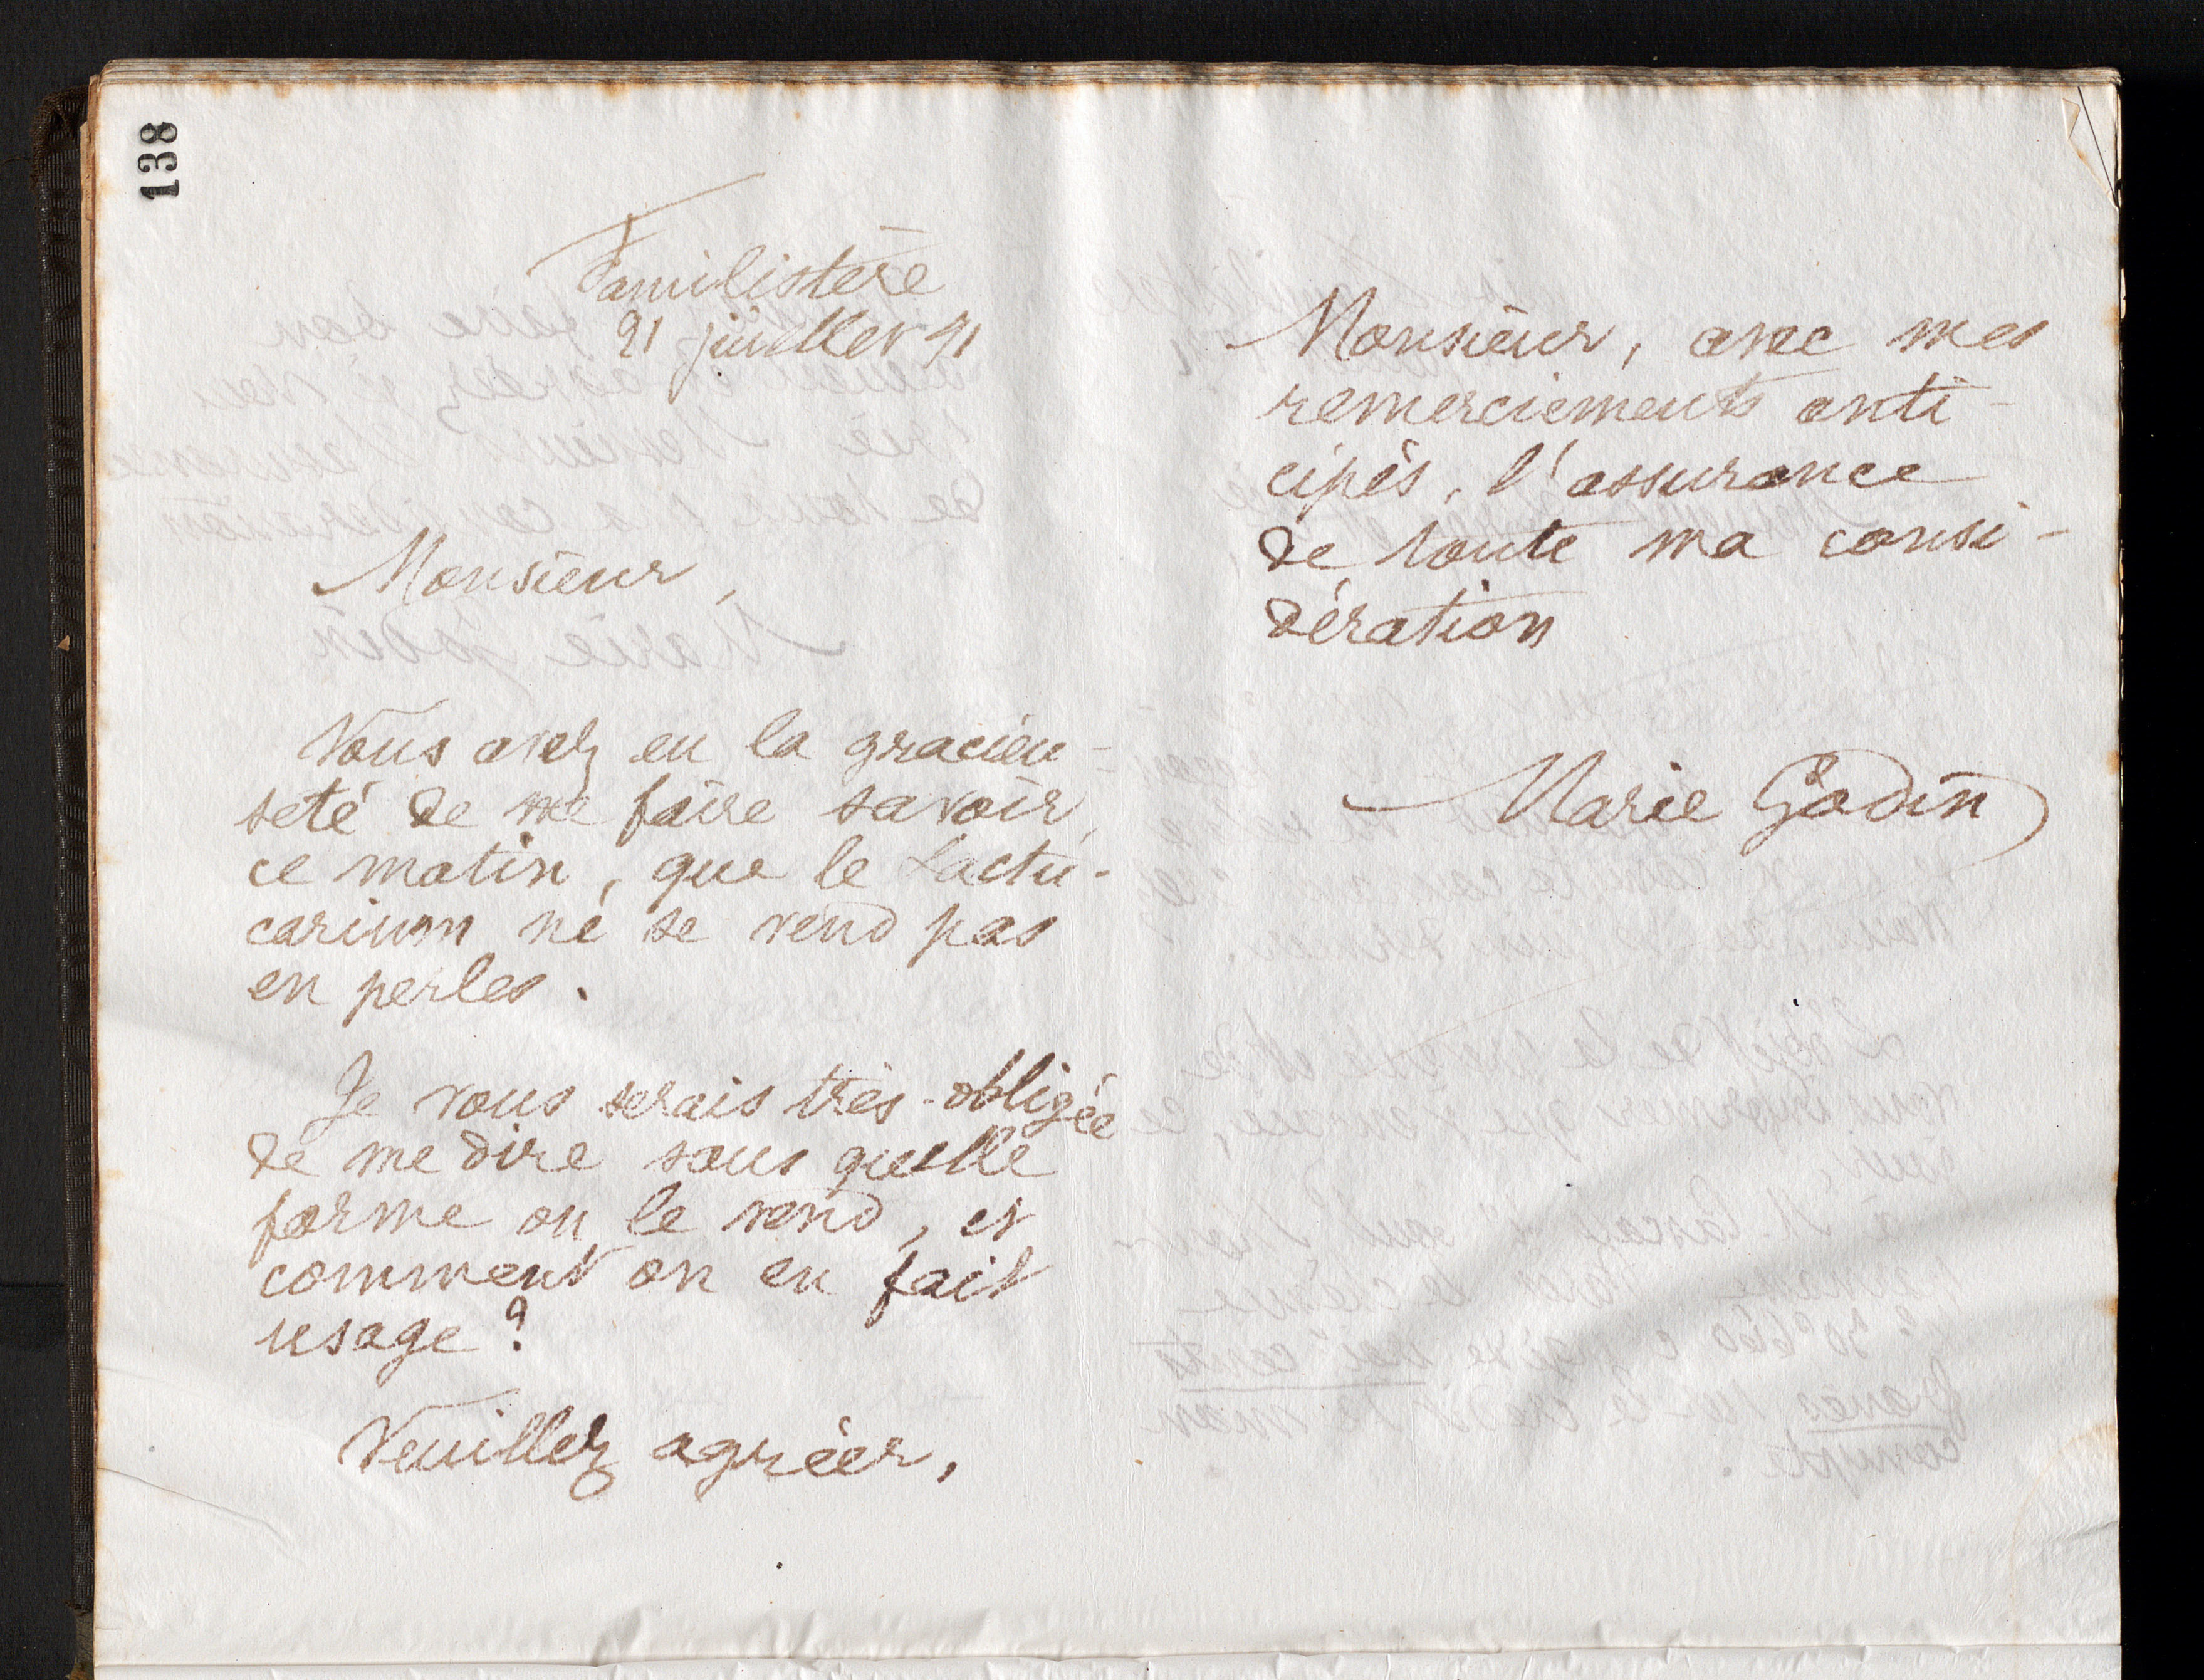 138
Familistère
21 juillet 91
Monsieur,
Vous avez eu la gracieu-
seté de me faire savoir,
ce matin, que le Lactu-
carium ne se vend pas
en perles.
Je vous serais très-obligée
de me dire sous quelle
forme on le vend, et
comment on en fait
usage?
Veuillez agréer,
Monsieur, avec mes
remerciements anti-
cipés, l'assurance
de toute ma consi-
dération
Marie Godin